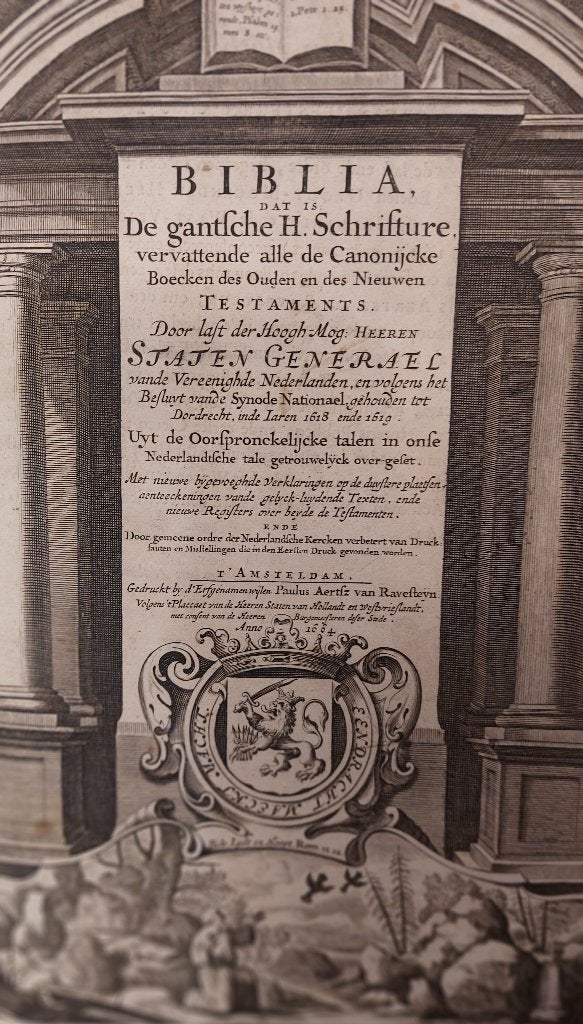 1. Petr 1. 25.
BIBLIA,
DAT IS
De gantsche H. Schrifture,
vervattende alle de Canonijcke
Boecken des Ouden en des Nieuwen
TESTAMENTS.
Door last der Hoogh-Mog: HEEREN
STATEN GENERAEL
vande Vereenighde Nederlanden, en volgens het
Besluyt vande Synode Nationael, gehouden tot
Dordrecht, inde Iaren 1618 ende 1619.
Uyt de Oorspronckelijcke talen in onse
Nederlandsche tale getrouwelijck over-geset.
Met nieuwe bijgevoeghde Verklaringen op de duystere plaetsen,
aenteeckeningen vande gelyck-luydende Texten, ende
nieuwe Registers over beyde de Testamenten.
ENDE
Door gemeene ordre der Nederlandsche Kercken verbetert van Druck-
fauten en Misstellingen die in den Eersten Druck gevonden worden.
T'AMSTELDAM,
Gedruckt by d'Erfgenamen wijlen Paulus Aertsz van Ravesteyn
Volgens 't Placcaet van de Heeren Staten van Hollandt en Westvrieslandt,
met consent van de Heeren Burgemeesteren deser Stede.
Anno 1664
EENDRACHT MAECKT MACHT